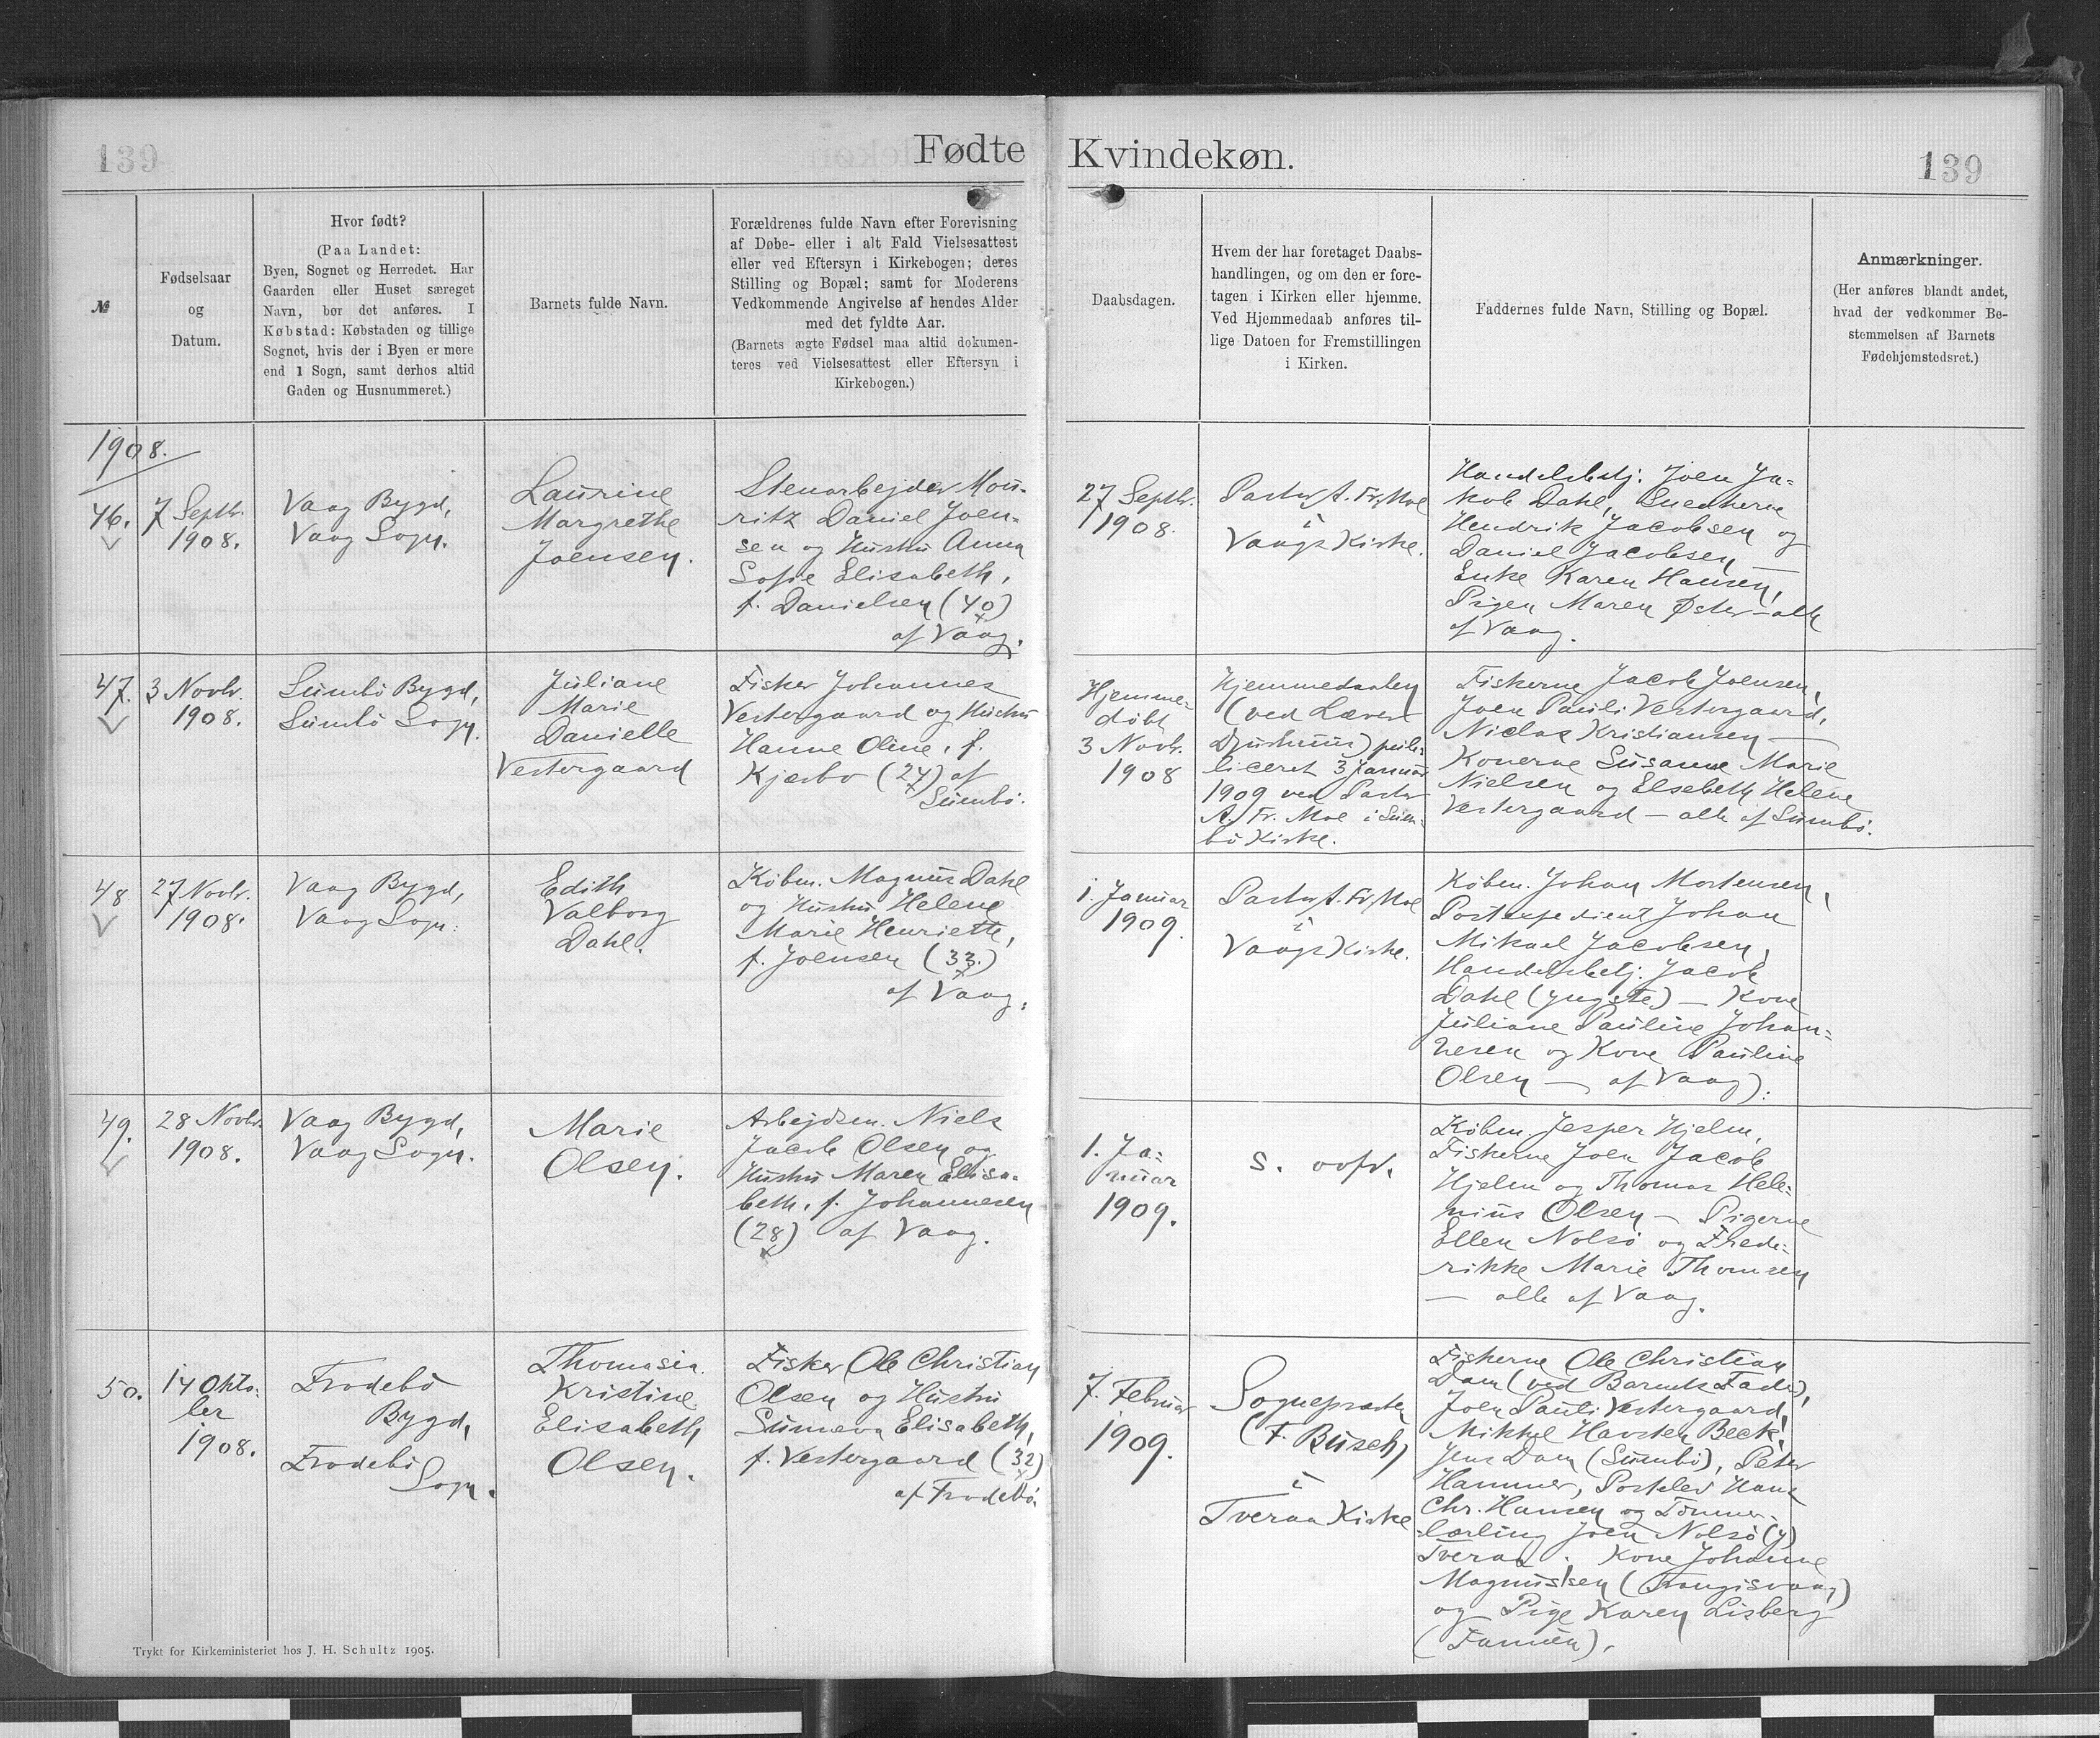 139
Fødte
Kvindekøn.
139
№
Fødselsaar
og
Datum.
Hvor født?
(Paa Landet:
Byen, Sognet og Herredet. Har
Gaarden eller Huset særeget
Navn, bør det anføres. I
Købstad: Købstaden og tillige
Sognet, hvis der i Byen er mere
end 1 Sogn, samt derhos altid
Gaden og Husnummeret.)
Barnets fulde Navn.
Forældrenes fulde Navn efter Forevisning
af Døbe- eller i alt Fald Vielsesattest
eller ved Eftersyn i Kirkebogen; deres
Stilling og Bopæl; samt for Moderens
Vedkommende Angivelse af hendes Alder
med det fyldte Aar.
(Barnets ægte Fødsel maa altid dokumen-
teres ved Vielsesattest eller Eftersyn i
Kirkebogen.)
Daabsdagen.
Hvem der har foretaget Daabs-
handlingen, og om den er fore-
tagen i Kirken eller hjemme.
Ved Hjemmedaab anføres til-
lige Datoen for Fremstillingen
i Kirken.
Faddernes fulde Navn, Stilling og Bopæl.
Anmærkninger.
(Her anføres blandt andet,
hvad der vedkommer Be-
stemmelsen af Barnets
Fødehjemstedsret.)
1908.
46.
7 Septbr.
1908.
Vaag Bygd,
Vaag Sogn.
Laurine
Margrethe
Joensen.
Stenarbejder Mou-
ritz Daniel Joen-
sen og Hustru Anna
Sofie Elisabeth,
f. Danielsen (40)
af Vaag.
27 Septbr.
1908.
Pastor A. Fr. Moe
i
Vaags Kirke.
Handelsbetj. Joen Ja-
kob Dahl, Snedkerne
Hendrik Jacobsen og
Daniel Jacobsen —
Enke Karen Hansen,
Pigen Maren Øster — alle
af Vaag.
47.
3 Novbr.
1908.
Sumbö Bygd,
Sumbö Sogn.
Juliane
Marie
Danielle
Vestergaard
Fisker Johannes
Vestergaard og Hustru
Hanne Oline, f.
Kjærbo (27) af
Sumbö.
Hjemme-
døbt
3 Novbr.
1908
Hjemmedaaben
(ved Lærer
Djurhuus) pub-
liceret 3 Januar
1909 ved Pastor
A. Fr. Moe i Sum-
bö Kirke.
Fiskerne Jacob Joensen,
Joen Pauli Vestergaard,
Niclas Kristiansen —
Konerne Susanne Marie
Nielsen og Elsebeth Helene
Vestergaard — alle af Sumbö.
48
27 Novbr.
1908.
Vaag Bygd,
Vaag Sogn.
Edith
Valborg
Dahl.
Købm. Magnus Dahl
og Hustru Helene
Marie Henriette,
f. Joensen (33.)
af Vaag.
1. Januar
1909.
Pastor A. Fr. Moe
i
Vaags Kirke.
Købm. Johan Mortensen,
Postexpedient Johan
Mikael Jacobsen,
Handelsbetj. Jacob
Dahl (yngste) — Kone
Juliane Pauline Johan-
nesen og Kone Pauline
Olsen — af Vaag).
49.
28 Novbr.
1908.
Vaag Bygd,
Vaag Sogn.
Marie
Olsen.
Arbejdsm. Niels
Jacob Olsen og
Hustru Maren Elisa-
beth, f. Johannesen
(28) af Vaag.
1. Ja-
nuar
1909.
S. ovfr.
Købm. Jesper Hjelm,
Fiskerne Joen Jacob
Hjelm og Thomas Hele-
nius Olsen — Pigerne
Ellen Nolsö og Frede-
rikke Marie Thomsen
— alle af Vaag.
50.
14 Okto-
ber
1908.
Frodebö
Bygd,
Frodebö
Sogn.
Thomasia
Kristine
Elisabeth
Olsen.
Fisker Ole Christian
Olsen og Hustru
Sunneva Elisabeth,
f. Vestergaard (32)
af Frodebö.
7. Februar
1909.
Sognepræsten
(F. Busch)
i
Tveraa Kirke
Fiskerne Ole Christian
Dam (ved Barnets Fader),
Joen Pauli Vestergaard,
Mikkel Havsten Beck,
Jens Dam (Sumbö), Peter
Hammer, Postelev Hans
Chr. Hansen og Tömmer-
lærling Joen Nolsö (y)
Tveraa. Kone Johanne
Magnussen (Trangisvaag)
og Pige Karen Lisberg
(Famien).
Trykt for Kirkeministeriet hos J. H. Schultz 1905.